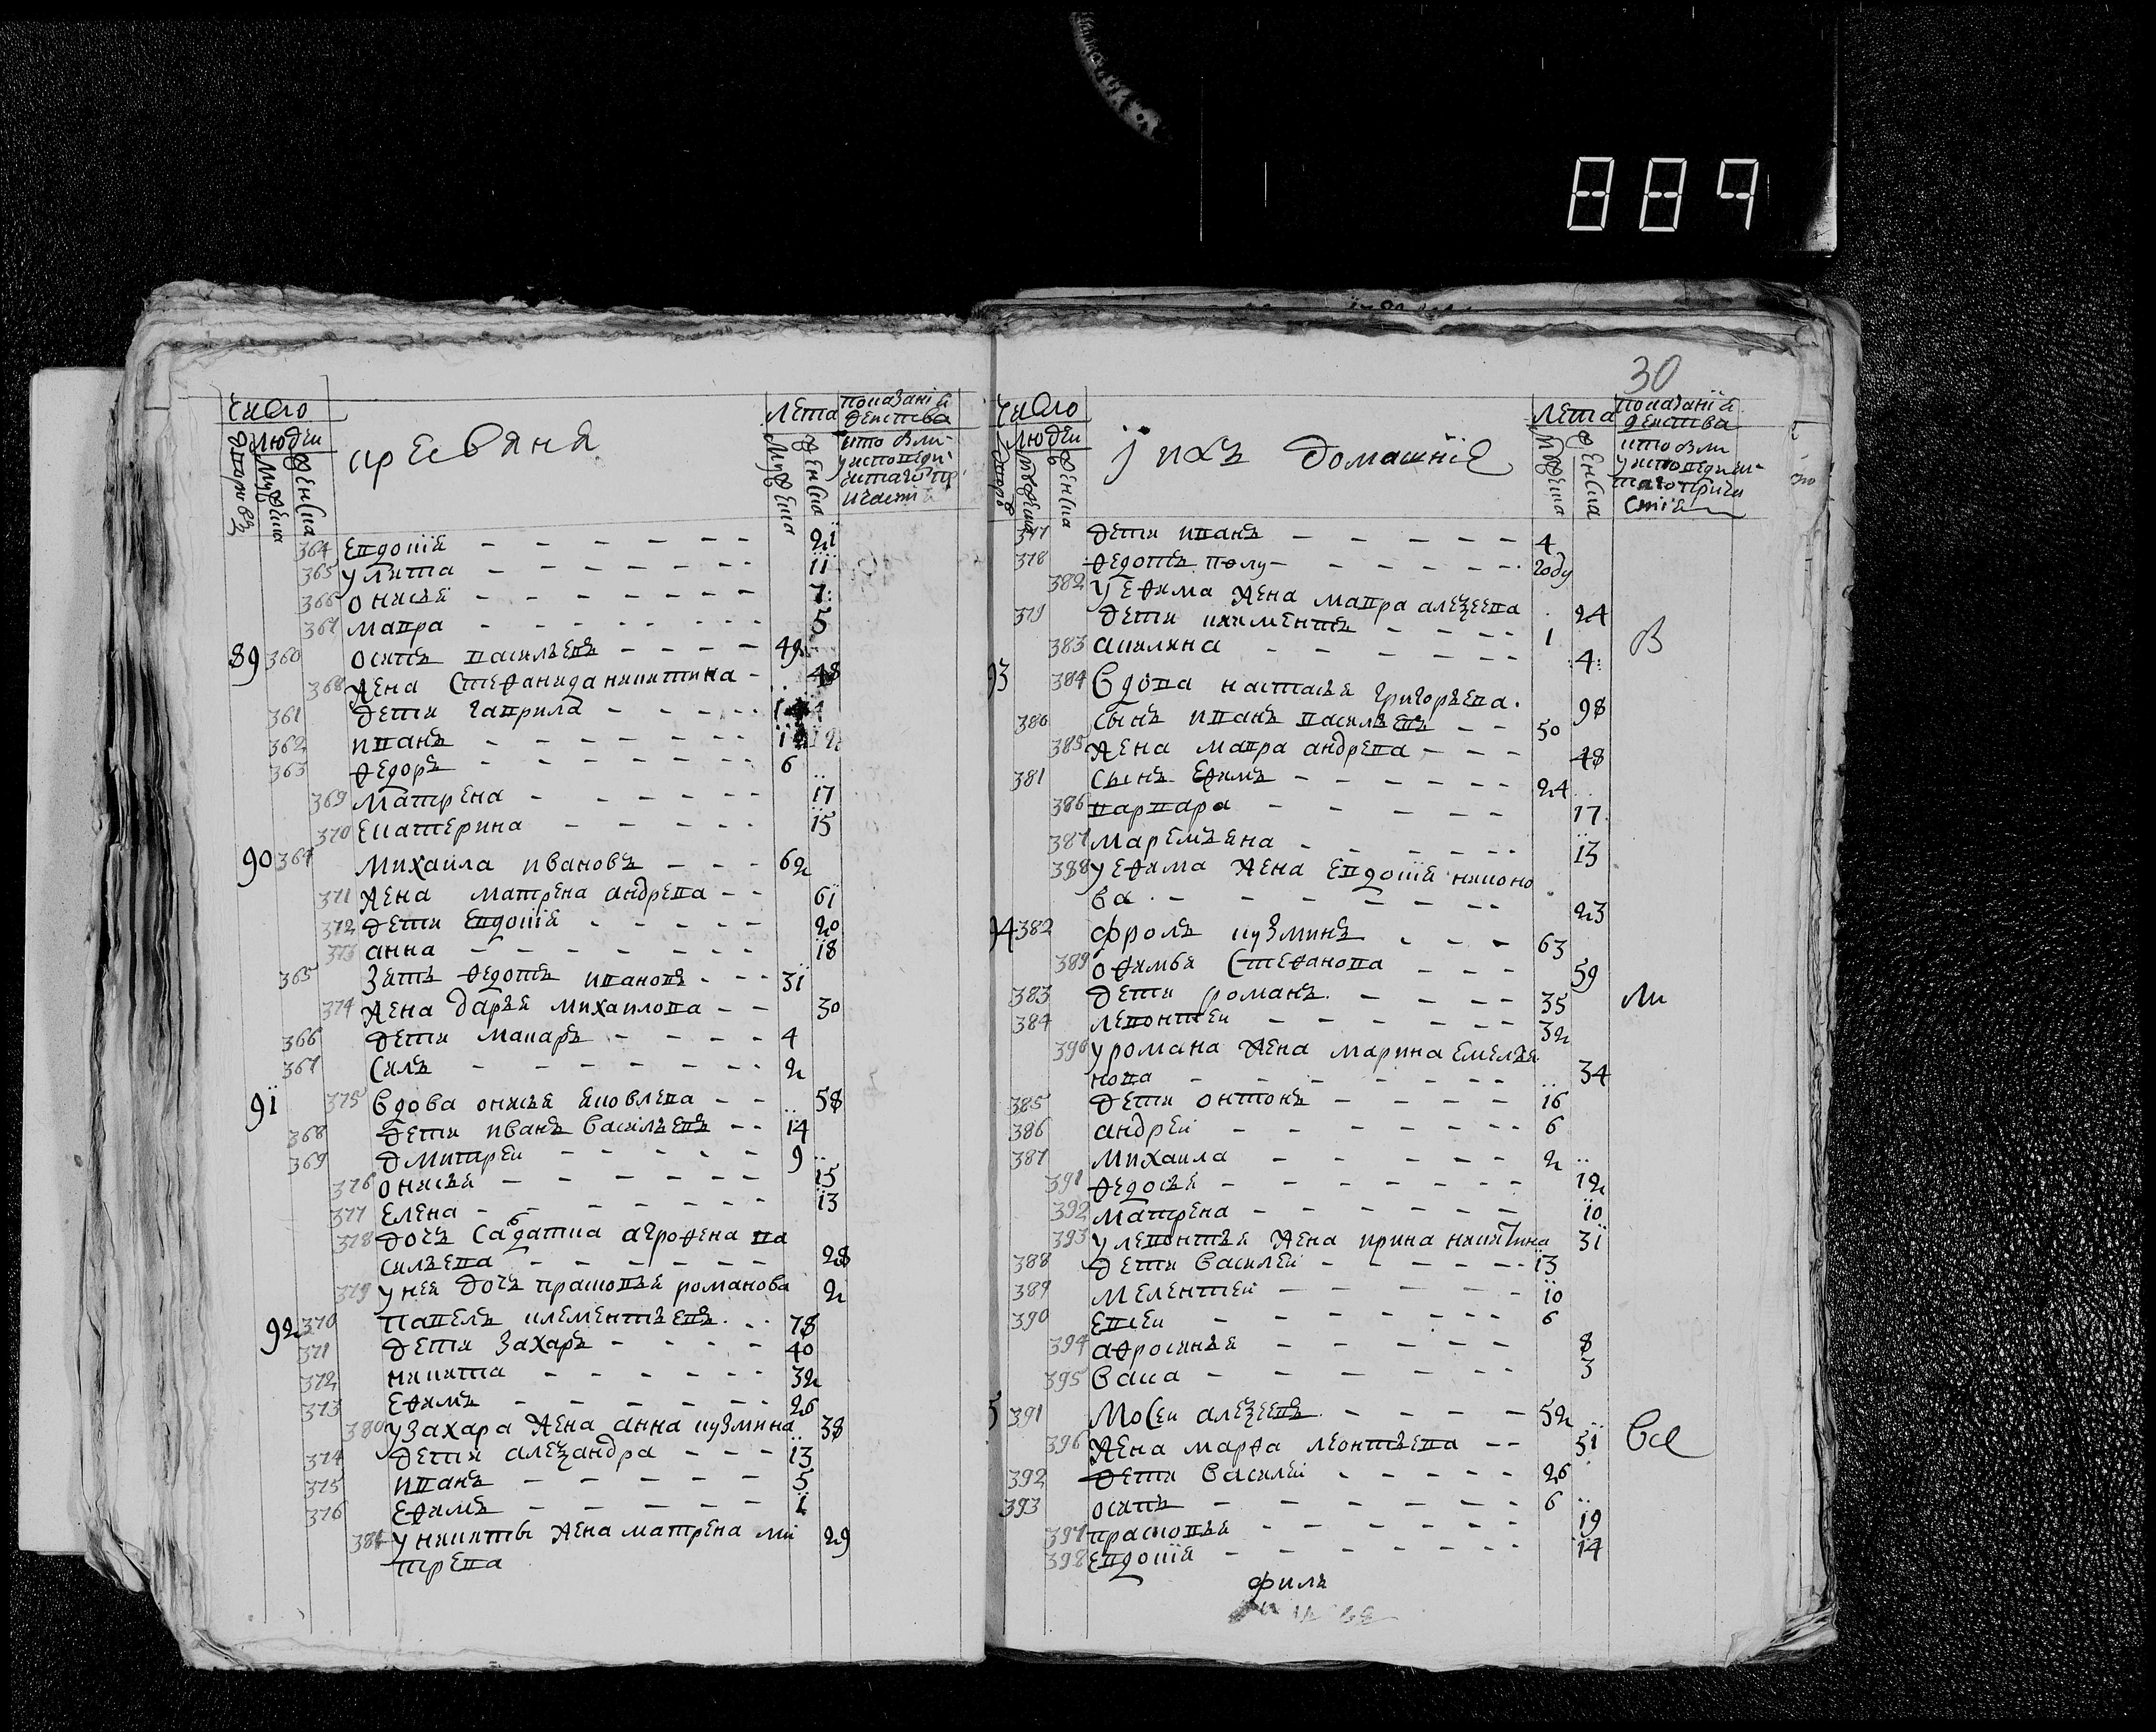 884
число
люδеи
дворовъ
мужеска
женска
кресвяня
лета
мужеска
женска
показаніи
деиства
кто в ли
у исповеди
364 евдокия - - - - - - - 21
365 улита - - - - - - - 11
366 онисья - - - - - - - 7
367 мавра - - - - - - - 5
89 360 осипъ васильевъ - - - - 49
368 жена стефанида никитина - 48
361 дети гаврила - - - - -
362 иванъ - - - - - - -
363 федоръ - - - - - - - 6
369 матрена - - - - - - 17
370 екатерина - - - - - 15
90 364 михаила ивановъ - - - 62
371 жена матрена андрева - - 61
372 дети евдокия - - - - - 20
373 анна - - - - - - - 18
365 зять федотъ ивановъ - - - 31
374 жена дарья михаилова - - 30
366 дети макаръ - - - - 4
367 силъ - - - - - - - 2
91 375 вдова онисья яковлева - - 58
368 дети иванъ васильевъ - - 14
369 дмитреи - - - - - 9
376 онисья - - - - - - 15
377 елена - - - - - - 13
378 дочь садатка агрофена ва
сильева - - - - - - 28
379 у неи дочь прасковья романова 2
92 370 павелъ клементьевъ - - 78
371 дети захаръ - - - - 40
372 никита - - - - - - 32
373 ефимъ - - - - - - 26
380 у захара жена анна кузмина 38
374 дети алеѯандра - - - 13
375 иванъ - - - - - 5
376 ефимъ - - - - - 1
381 у никиты жена матрена ми 29
трева
30
число
люδеи
дворовъ
мужеска
женска
j ихъ домашнiе
лета
мужеска
женска
показанiи
деиства
кто в ли
377 дети иванъ - - - - - 4
378 федотъ полу - - - - - году
382 у ефима жена мавра алеѯеева 24
379 дети климентъ - - - - 1
383 акилина - - - - - - 4
в
93 384 вдова настасья григорьева 98
380 сынъ иванъ васильевъ - - 50
385 жена мавра андрева - - - 48
381 сынъ ефимъ - - - - - - 24
386 варвара - - - - - - 17
387 маремьяна - - - - - - 13
398 у ефима жена евдокия никоно
ва - - - - - - - 23
94 382 фролъ кузминъ - - - 63
389 офимья стефанова - - - 59
383 дети романъ - - - - 35
ли
384 левонтеи - - - - - - 32
390 у романа жена марина емелья
нова - - - - - - - 34
385 дети онтонъ - - - - - 16
386 андреи - - - - - - - 6
387 михаила - - - - - - 2
391 федосья - - - - - - - 12
392 матрена - - - - - - 10
393 у левонтья жена ирина никитина 31
388 дети василеи - - - - - 13
389 мелентеи - - - - - - 10
390 евсеи - - - - - - - 6
394 афросинья - - - - - 8
395 васа - - - - - - - 3
5 391 мосеи алеѯеевъ - - - - 52
396 жена марфа леонтьева - - 51
все
392 дети василеи - - - - - 26
393 осипъ - - - - - - - 6
397 прасковья - - - - - - 19
398 евдокия - - - - - - - 14
филъ